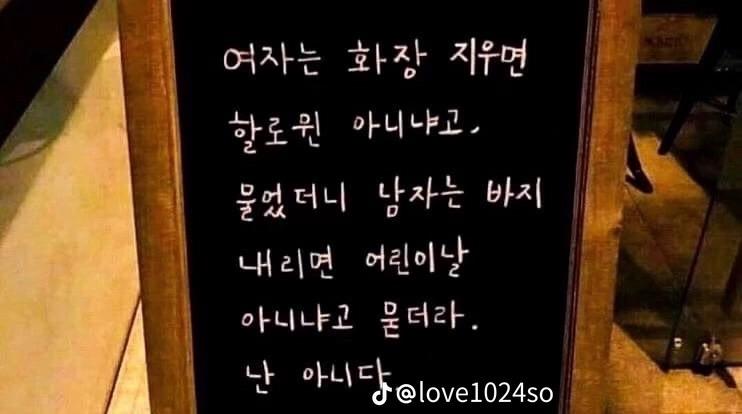 여자는 화장 지우면
할로윈 아니냐고,
물었더니 남자는 바지
내리면 어린이날
아니냐고 묻더라.
난 아니다
@love1024so